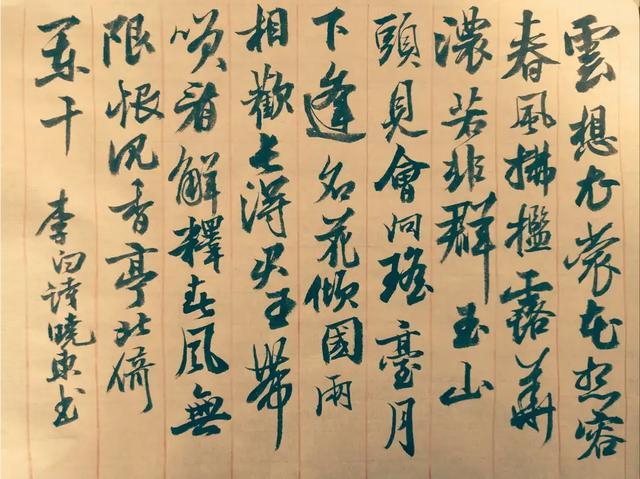 雲想衣裳花想容
春風拂檻露華
濃若非群玉山
頭見會向瑤臺月
下逢名花傾國兩
相歡長得君王帶
笑看解釋春風無
限恨沉香亭北倚
闌干 李白詩曉東书